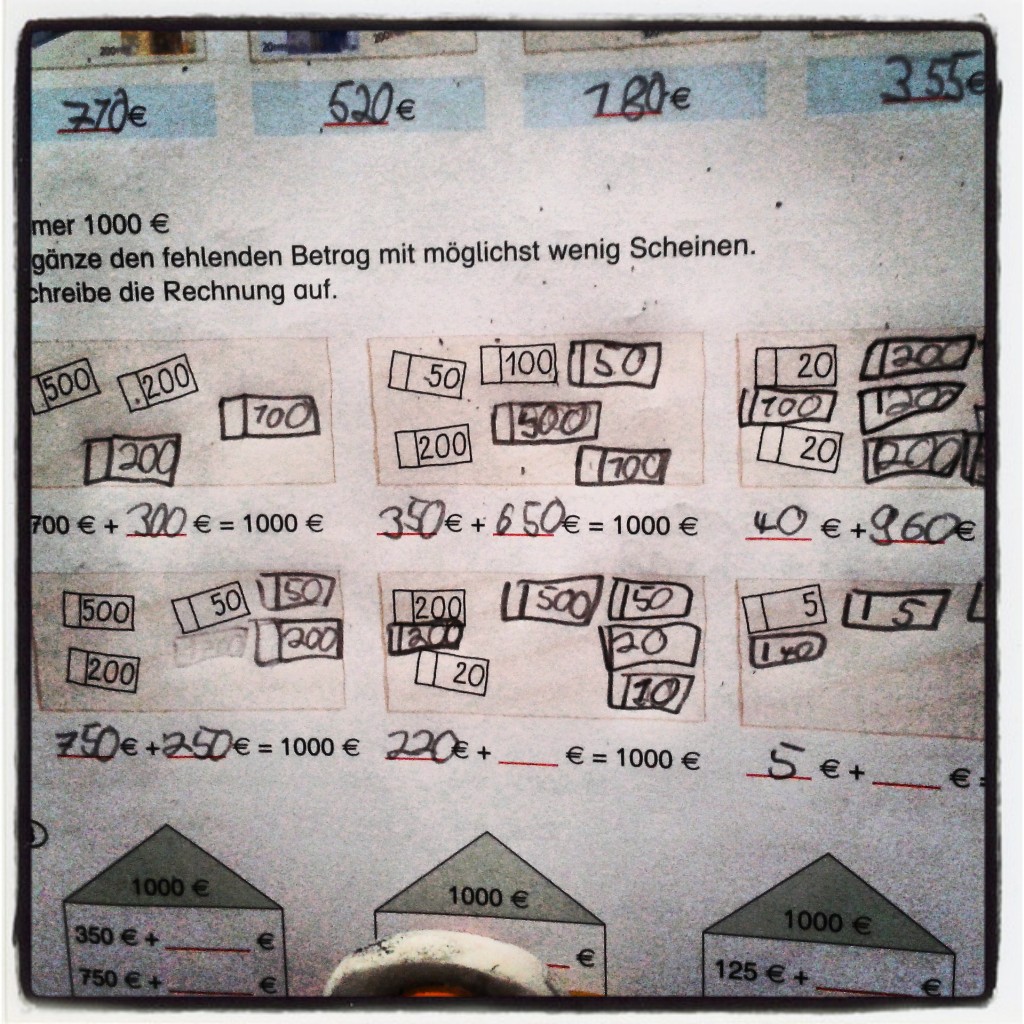 770€ 520€ 180€ 355€
mer 1000 €
gänze den fehlenden Betrag mit möglichst wenig Scheinen.
chreibe die Rechnung auf.
500 200 50 100 50 20 200
100 500 100 200
200 200 100 20 200
700 € + 300 € = 1000 € 350€ + 650€ = 1000 € 40 € + 960€
500 50 50 200 500 50 5 5
200 200 20
200 20 10
750€ + 250€ = 1000 € 220€ + € = 1000 € 5 € + € =
1000 € 1000 € 1000 €
350 € + € € 125 € + €
750 € + €